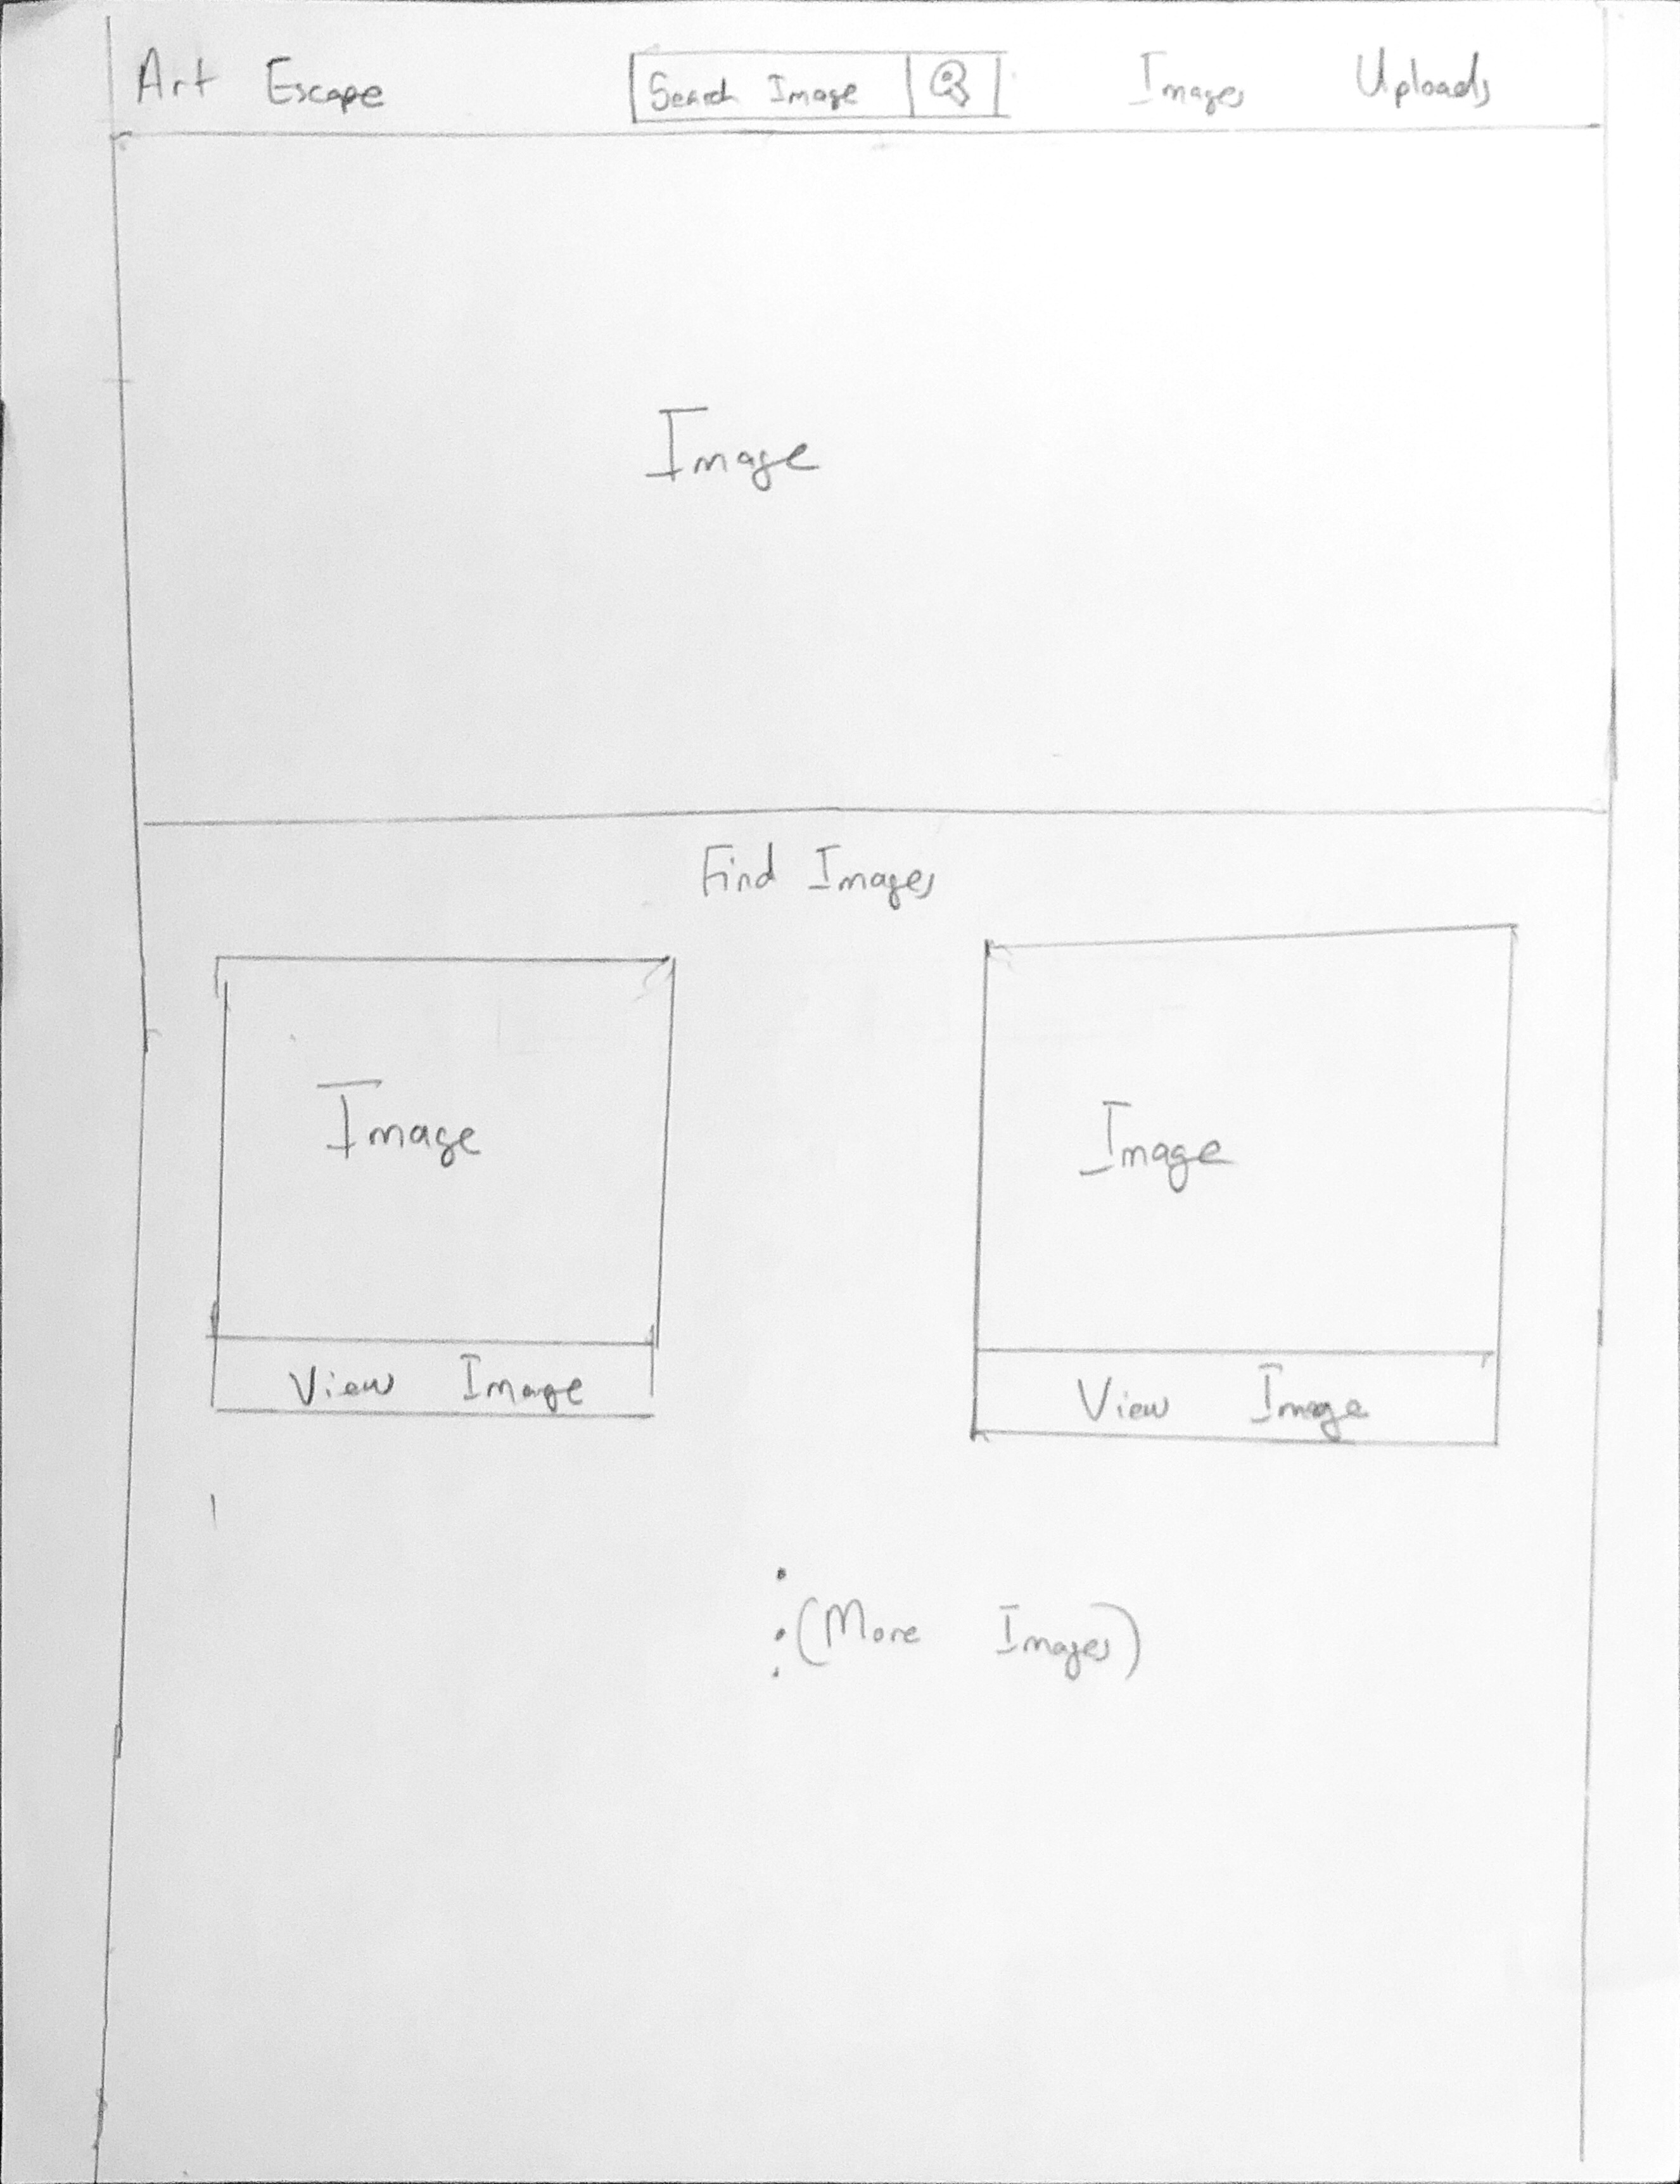 Art Escape Search Image Images Uploads
Image
Find Images
Image Image
View Image View Image
(More Images)